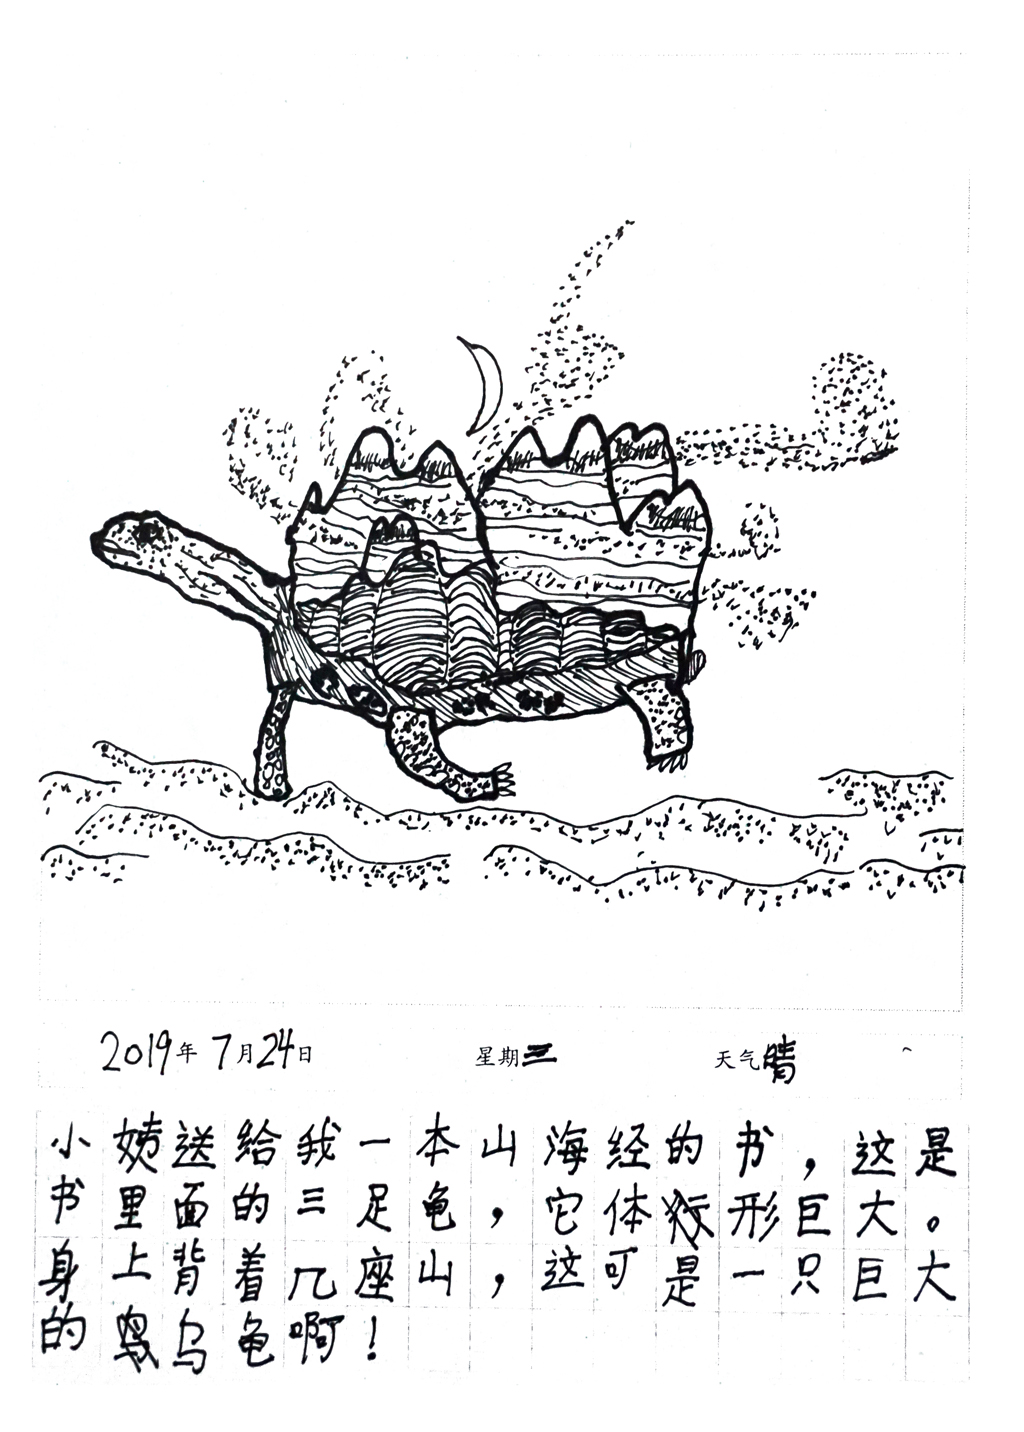 2019年7月24日 星期三 天气晴
小姨送给我一本山海经的书，这是
书里面的三足龟，它体形巨大。
身上背着几座山，这可是一只巨大
的乌龟啊！